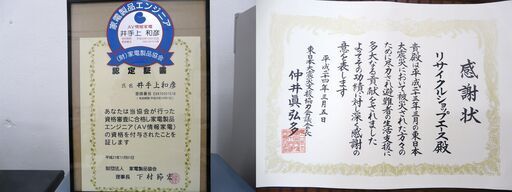 家電製品エンジニア
AV情報家電
井手上 和彦
(財)家電製品協会
認定証書
氏名 井手上和彦
あなたは当協会が行った
資格審査に合格し家電製品
エンジニア(AV情報家電)
の資格を付与されたことを
証します
平成21年11月01日
財団法人 家電製品協会
理事長 下村節宏
感謝状
リサイクルショップエース殿
貴殿は平成二十三年三月の東日本
大震災において被災された方々の
ために尽力され避難者の生活支援に
多大なる貢献をされました
よってその功績に対し深く感謝の
意を表します
平成二十四年二月五日
東日本大震災支援協力会議会長
仲井眞弘多